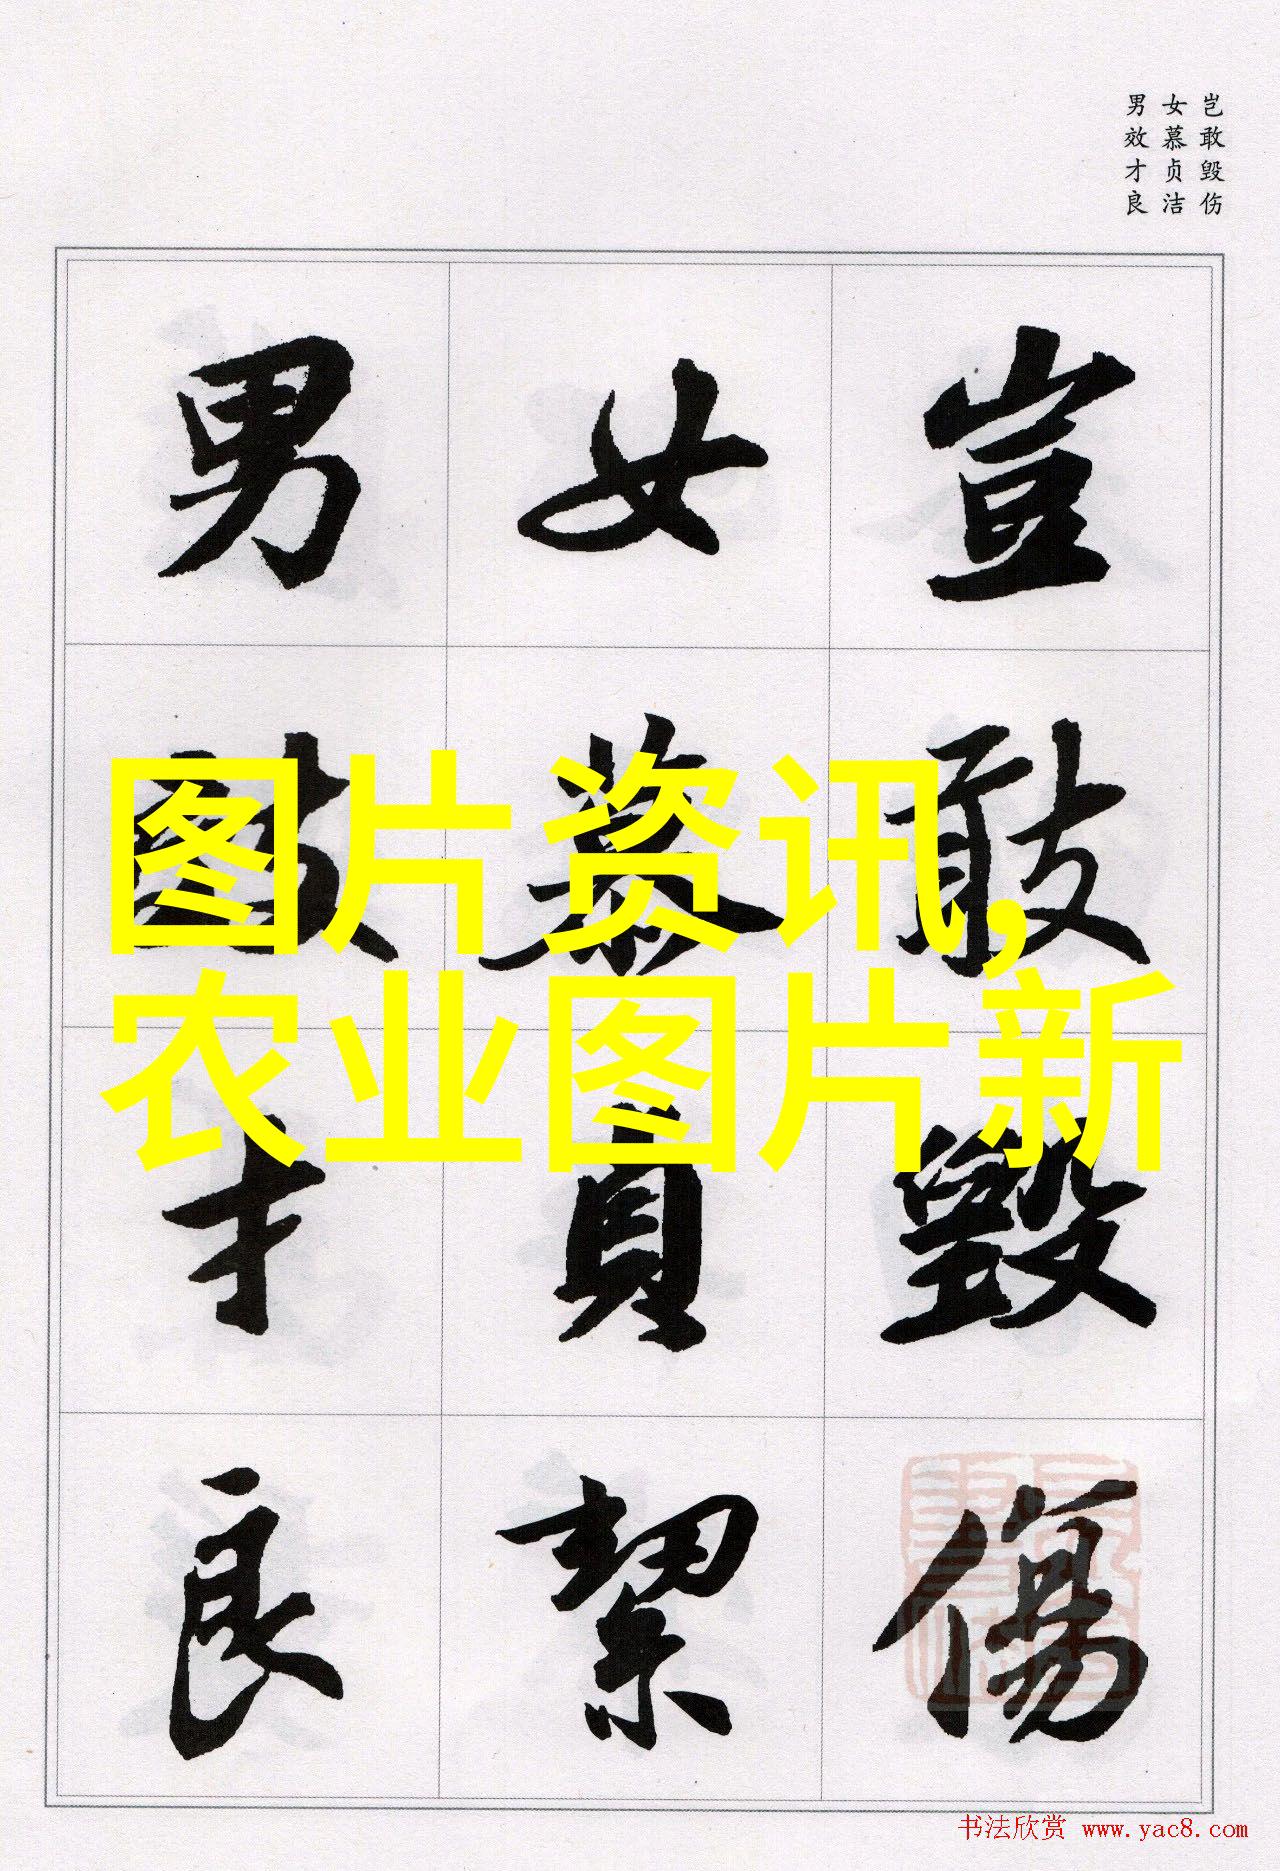 岂敢毁伤
女慕贞洁
男效才良
豈敢毀傷
女慕貞絜
男效才良
图片资讯,
农业图片新
书法欣赏 www.yac8.com